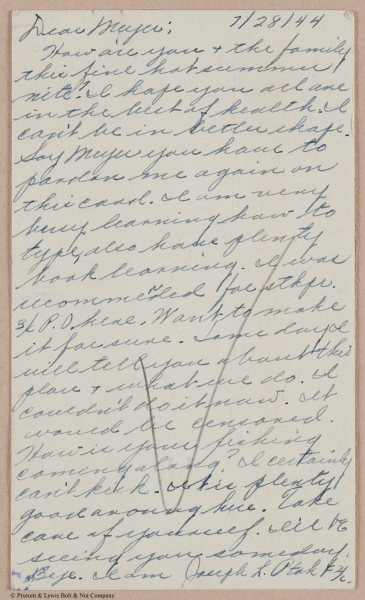 Dear Meyer; 7/28/44
How are you & the family
this fine hot summer
nite? I hope you all are
in the best of health. I
can't be in better shape.
Say Meyer you have to
pardon me again on
this card. I am very
busy learning how to
type, also have plenty
book learning. I was
recommended for stkpr.
3/c P.O. here. Want to make
it for sure. Some day I
will tell you about this
place & what we do. I
couldn't do it now. It
would be censored.
How is your fishing
coming along? I certainly
can't kick. It is plenty
good around here. Take
care of yourself. I'll be
seeing you someday.
Bye. I am Joseph L. Ptak
© Pixeum & Lewis Bolt & Nut Company